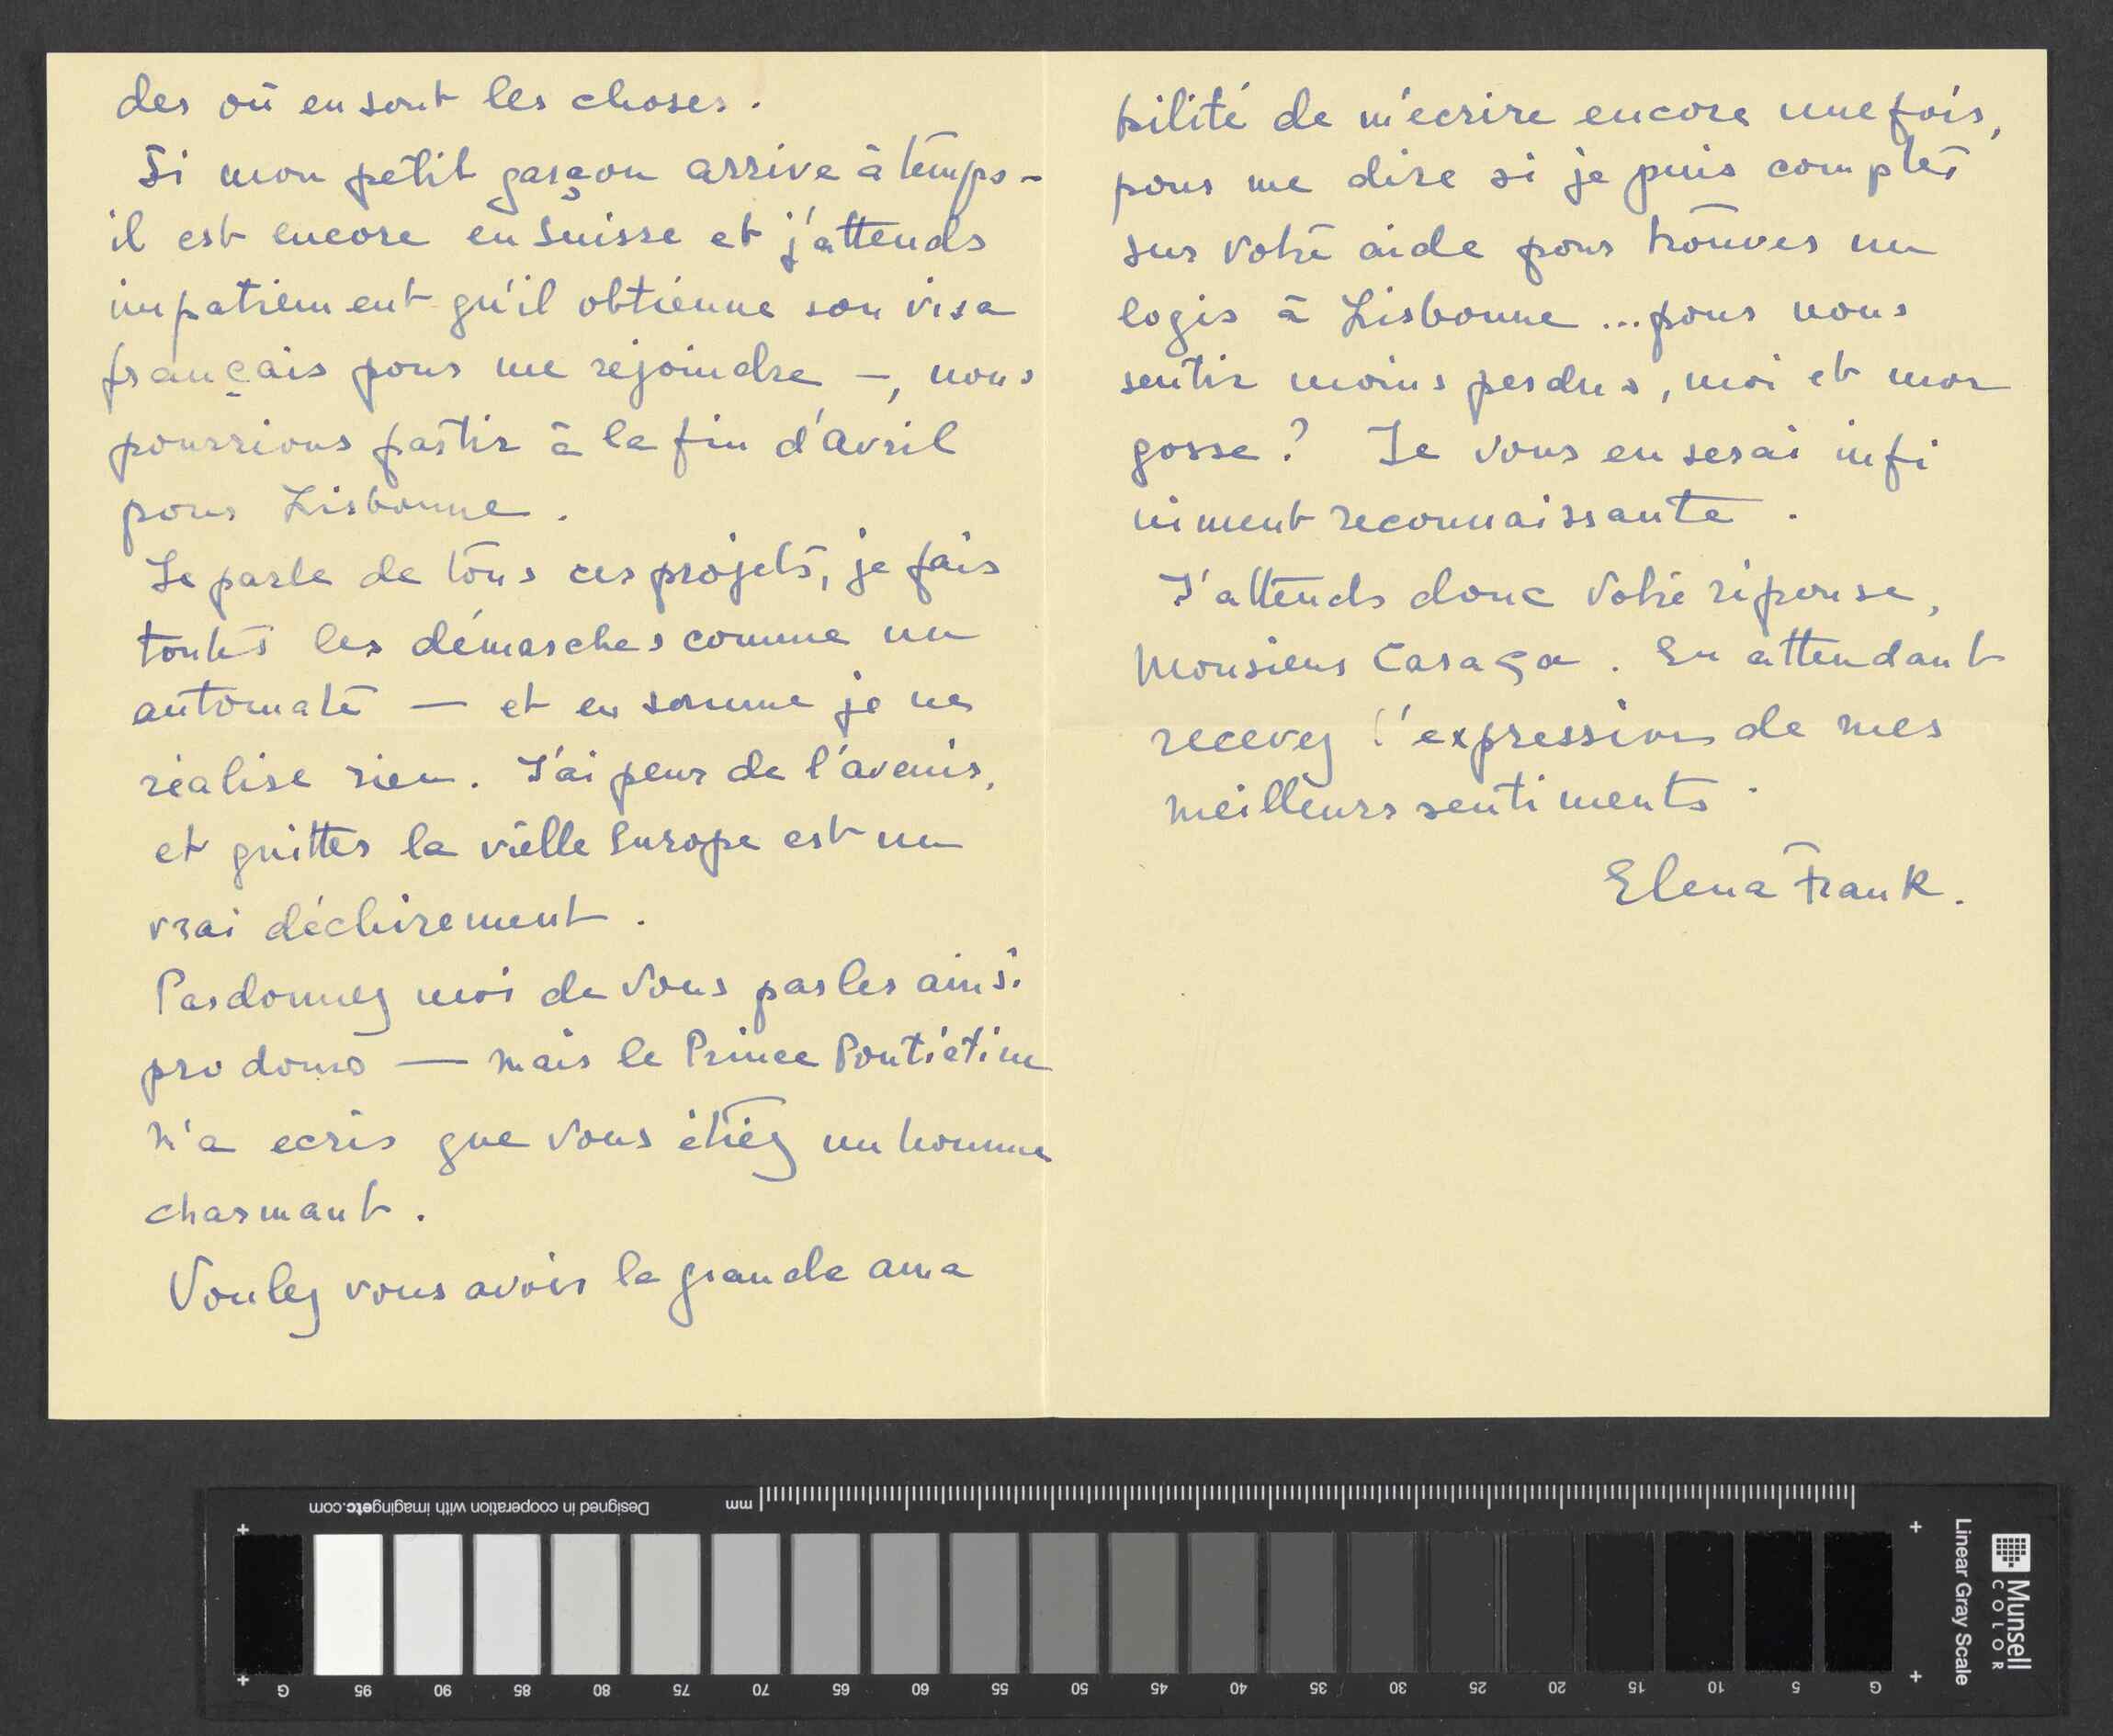 des où en sont les choses.
Si mon petit garçon arrive à temps -
il est encore en Suisse et j'attends
impatiemment qu'il obtienne son visa
français pour me rejoindre -, nous
pourrions partir à la fin d'avril
pour Lisbonne.
Je parle de tous ces projets, je fais
toutes les démarches comme un
automate — et en somme je ne
réalise rien. J'ai peur de l'avenir,
et quitter la vielle Europe est un
vrai déchirement.
Pardonnez moi de vous parler ainsi
pro domo — mais le Prince
m'a ecris que vous étiez un homme
charmant.
Voulez vous avoir la grande ama
bilité de m'écrire encore une fois,
pour me dire si je puis compter
sur votre aide pour trouver un
logis à Lisbonne ... pour nous
sentir moins perdus, moi et mon
gosse? Je vous en serai infi
niment reconnaissante.
J'attends donc votre réponse,
Monsieur Casaça. En attendant
recevez l'expression de mes
meilleurs sentiments.
Elena Frank.
Designed in cooperation with imagingetc.com
mm
G 95 90 85 80 75 70 65 60 55 50 45 40 35 30 25 20 15 10 5 G
Linear Gray Scale
Munsell
COLOR